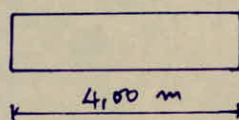 4,00 m